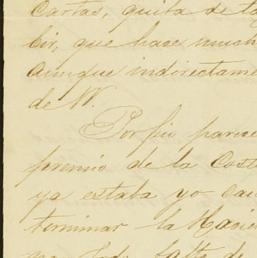 Cartas, quita de
bir, que hace much
aunque indirectame
de W.
Por fin parece
premio de la Cost
ya estaba yo can
terminar la Hacie
falta de